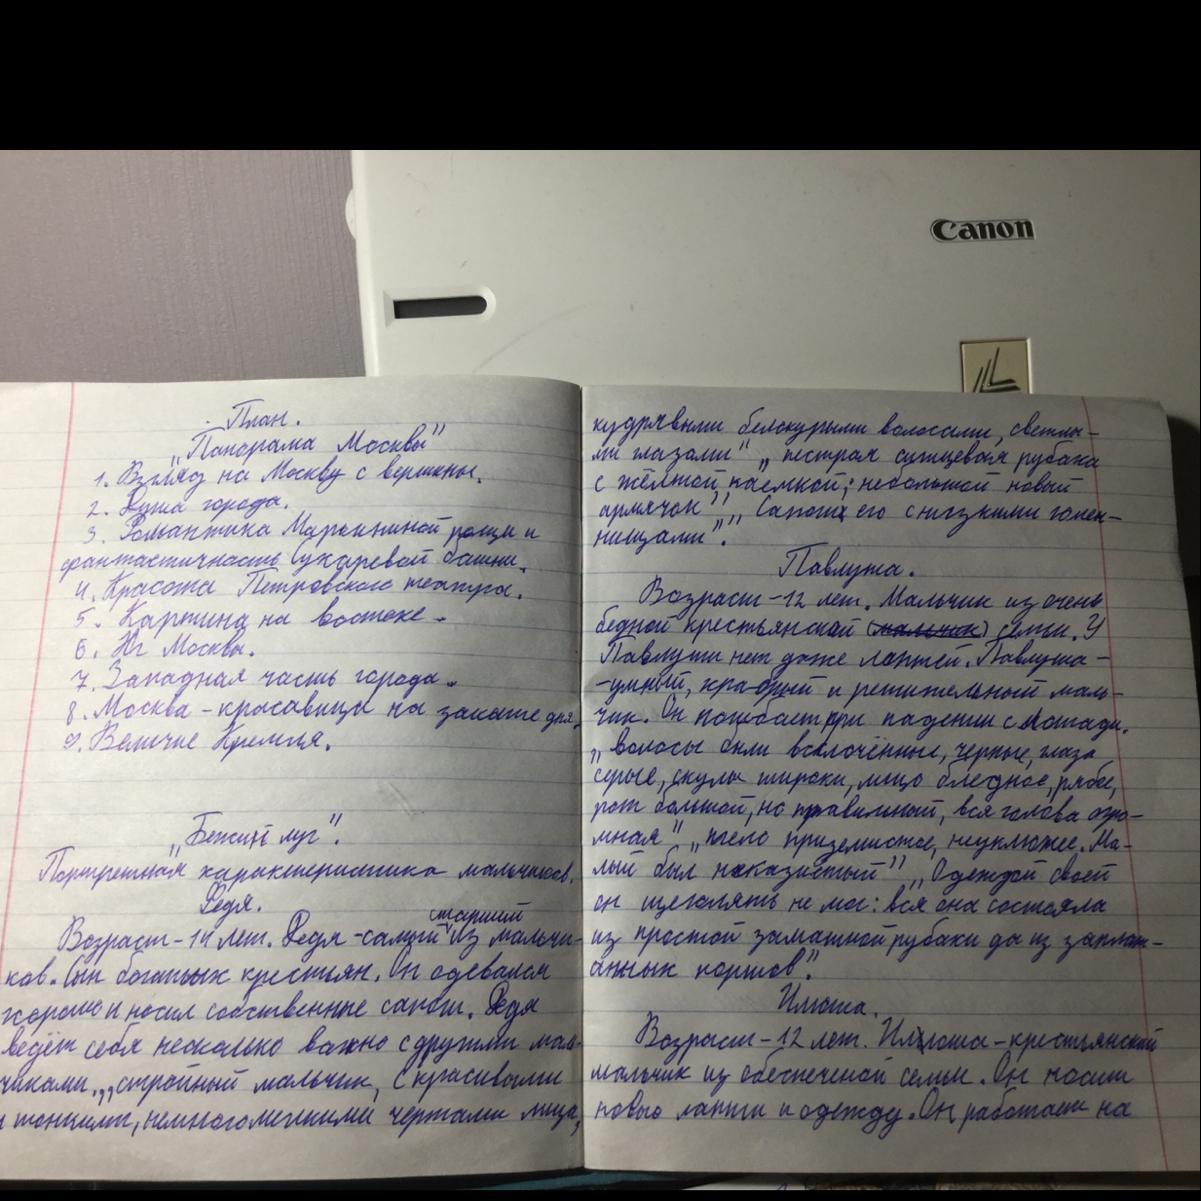 Canon
План.
„Панорама Москвы"
1. Взгляд на Москву с вершины.
2. Душа города.
3. Романтика Марьиной рощи и
фантастичность Сухаревой башни.
4. Красота Петровского театра.
5. Картина на востоке.
6. Юг Москвы.
7. Западная часть города.
8. Москва - красавица на закате дня.
9. Величие Кремля.
„Бежин луг".
Портретная характеристика мальчиков.
Федя.
Возраст - 14 лет. Федя - самый старший из мальчи-
ков. Сын богатых крестьян. Он одевался
хорошо и носил собственные сапоги. Федя
ведёт себя несколько важно с другими маль-
чиками. „стройный мальчик, с красивыми
и тонкими, немного мелкими чертами лица,
кудрявыми белокурыми волосами, светлы-
ми глазами" „пестрая ситцевая рубаха
с жёлтой каёмкой; небольшой новый
армячок" „Сапоги его с низкими голен-
ищами".
Павлуша.
Возраст - 12 лет. Мальчик из очень
бедной крестьянской (мальчик) семьи. У
Павлуши нет даже лаптей. Павлуша -
- умный, храбрый и решительный маль-
чик. Он погибает при падении с лошади.
„волосы были всклоченные, черные, глаза
серые, скулы широки, лицо бледное, рябое,
рот большой, но правильный, вся голова огро-
мная" „тело приземистое, неуклюжее. Ма-
лый был неказистый" „Одеждой своей
он щеголять не мог: вся она состояла
из простой замашной рубахи да из заплат-
анных портов".
Илюша.
Возраст - 12 лет. Илюша - крестьянский
мальчик из обеспеченой семьи. Он носит
новые лапти и одежду. Он работает на